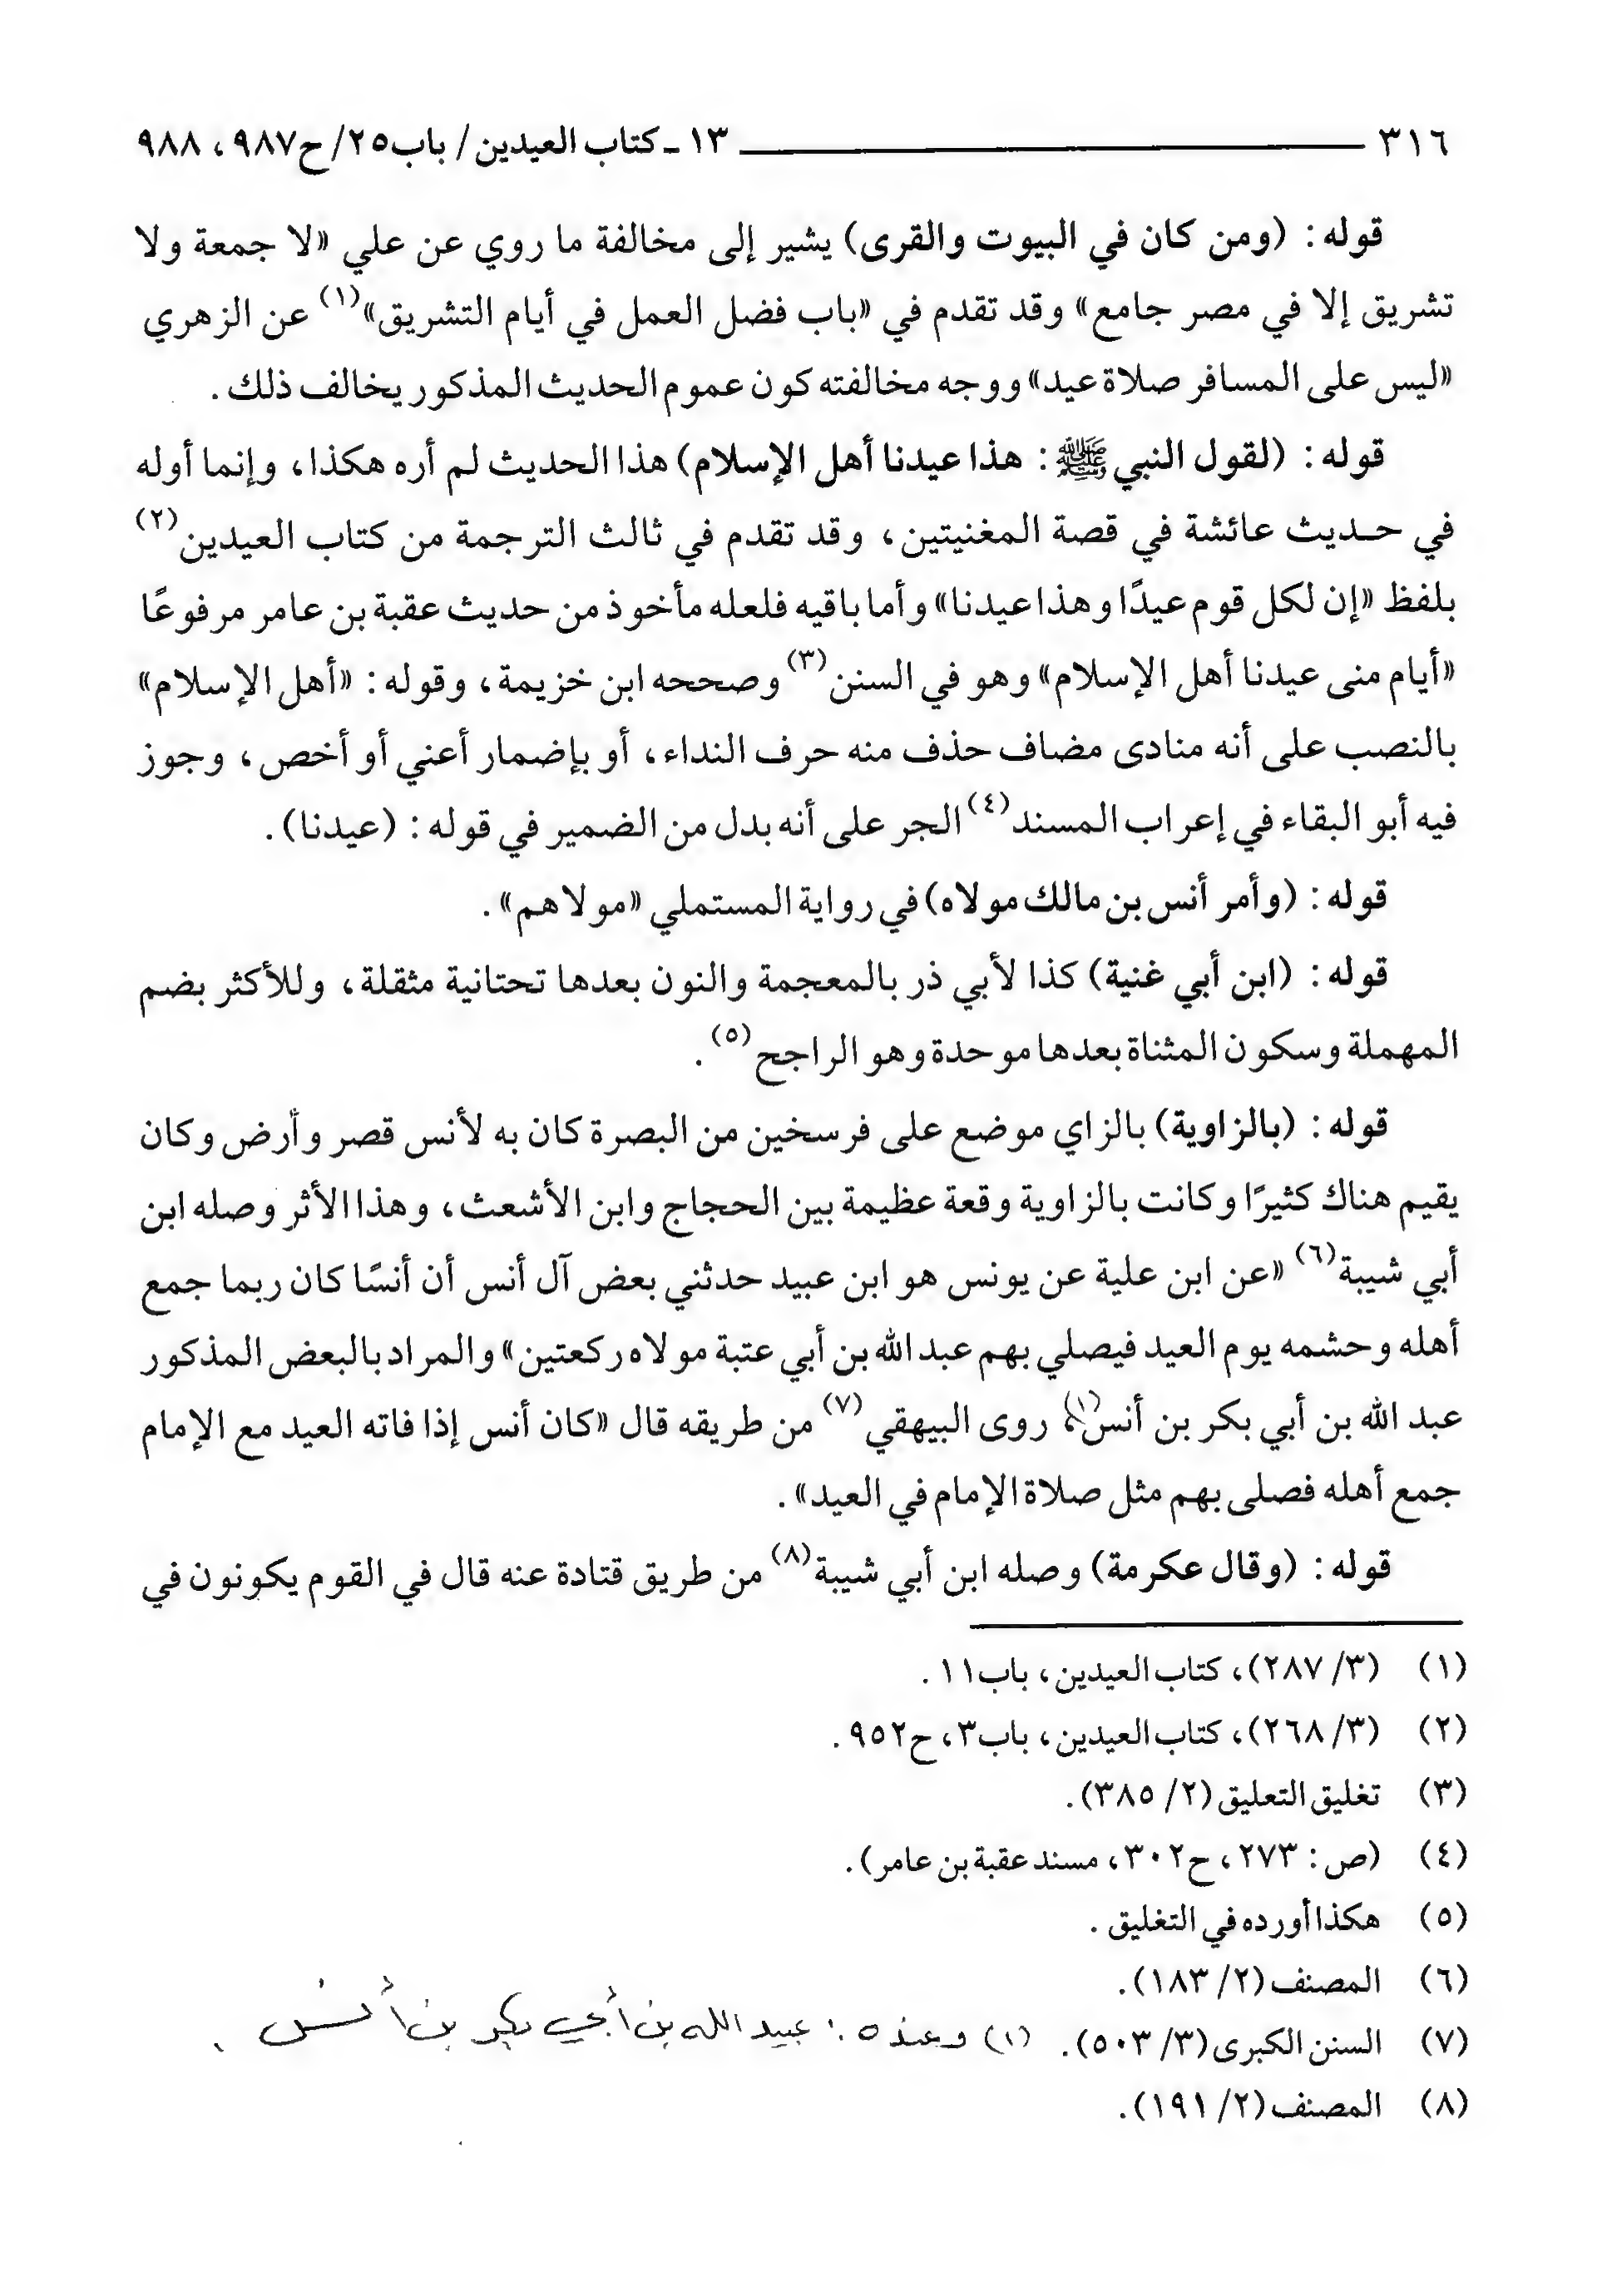 ٣١٦ ــــــ ١٣ ـ كتاب العيدين / باب٢٥/ ح٩٨٧، ٩٨٨
قوله: (ومن كان في البيوت والقرى) يشير إلى مخالفة ما روي عن علي «لا جمعة ولا
تشريق إلا في مصر جامع» وقد تقدم في «باب فضل العمل في أيام التشريق»(١) عن الزهري
«ليس على المسافر صلاة عيد» ووجه مخالفته كون عموم الحديث المذكور يخالف ذلك.
قوله: (لقول النبي ﷺ: هذا عيدنا أهل الإسلام) هذا الحديث لم أره هكذا، وإنما أوله
في حـديث عائشة في قصة المغنيتين، وقد تقدم في ثالث الترجمة من كتاب العيدين(٢)
بلفظ «إن لكل قوم عيدًا وهذا عيدنا» وأما باقيه فلعله مأخوذ من حديث عقبة بن عامر مرفوعًا
«أيام منى عيدنا أهل الإسلام» وهو في السنن(٣) وصححه ابن خزيمة، وقوله: «أهل الإسلام»
بالنصب على أنه منادى مضاف حذف منه حرف النداء، أو بإضمار أعني أو أخص، وجوز
فيه أبو البقاء في إعراب المسند(٤) الجر على أنه بدل من الضمير في قوله: (عيدنا).
قوله: (وأمر أنس بن مالك مولاه) في رواية المستملي «مولاهم».
قوله: (ابن أبي غنية) كذا لأبي ذر بالمعجمة والنون بعدها تحتانية مثقلة، وللأكثر بضم
المهملة وسكون المثناة بعدها موحدة وهو الراجح(٥).
قوله: (بالزاوية) بالزاي موضع على فرسخين من البصرة كان به لأنس قصر وأرض وكان
يقيم هناك كثيرًا وكانت بالزاوية وقعة عظيمة بين الحجاج وابن الأشعث، وهذا الأثر وصله ابن
أبي شيبة(٦) «عن ابن علية عن يونس هو ابن عبيد حدثني بعض آل أنس أن أنسًا كان ربما جمع
أهله وحشمه يوم العيد فيصلي بهم عبد الله بن أبي عتبة مولاه ركعتين» والمراد بالبعض المذكور
عبد الله بن أبي بكر بن أنس(١)، روى البيهقي(٧) من طريقه قال «كان أنس إذا فاته العيد مع الإمام
جمع أهله فصلى بهم مثل صلاة الإمام في العيد».
قوله: (وقال عكرمة) وصله ابن أبي شيبة(٨) من طريق قتادة عنه قال في القوم يكونون في
(١) (٣/ ٢٨٧)، كتاب العيدين، باب١١.
(٢) (٣/ ٢٦٨)، كتاب العيدين، باب٣، ح٩٥٢.
(٣) تغليق التعليق (٢/ ٣٨٥).
(٤) (ص: ٢٧٣، ح٣٠٢، مسند عقبة بن عامر).
(٥) هكذا أورده في التغليق.
(٦) المصنف (٢/ ١٨٣).
(٧) السنن الكبرى (٣/ ٥٠٣). (١) وعنده: عبيد الله بن أبي بكر بن أنس.
(٨) المصنف (٢/ ١٩١).